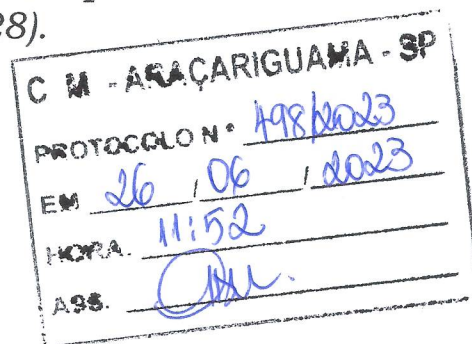 28).
C M - ARAÇARIGUAMA - SP
PROTOCOLO Nº 498/2023
EM 26 / 06 / 2023
HORA. 11:52
ASS.